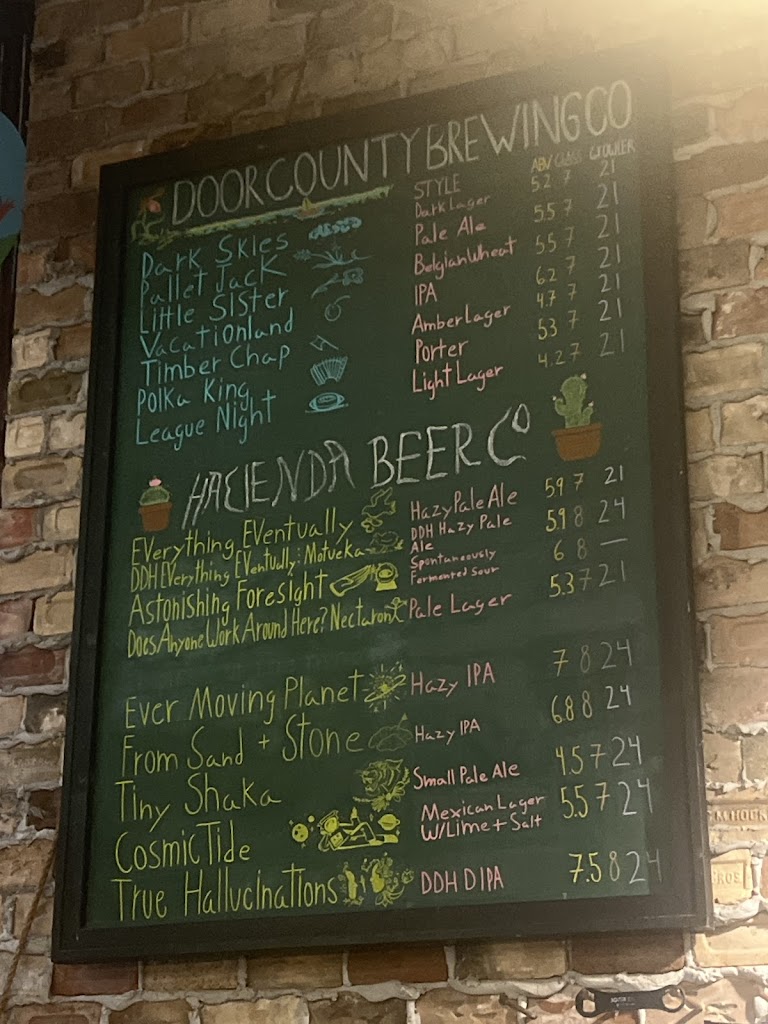 DOOR COUNTY BREWING CO
STYLE ABV GLASS GROWLER
Dark Skies Dark Lager 5.2 7 21
Pallet Jack Pale Ale 5.5 7 21
Little Sister Belgian Wheat 5.5 7 21
Vacationland IPA 6.2 7 21
Timber Chap Amber Lager 4.7 7 21
Polka King Porter 5.3 7 21
League Night Light Lager 4.2 7 21
HACIENDA BEER CO
Everything Eventually Hazy Pale Ale 5.9 7 21
DDH Everything Eventually: Motueka DDH Hazy Pale Ale 5.9 8 24
Astonishing Foresight Spontaneously Formented Sour 6 8 —
Does Anyone Work Around Here? Nectaron Pale Lager 5.3 7 21
Ever Moving Planet Hazy IPA 7 8 24
From Sand + Stone Hazy IPA 6.8 8 24
Tiny Shaka Small Pale Ale 4.5 7 24
Cosmic Tide Mexican Lager W/Lime + Salt 5.5 7 24
True Hallucinations DDH DIPA 7.5 8 24